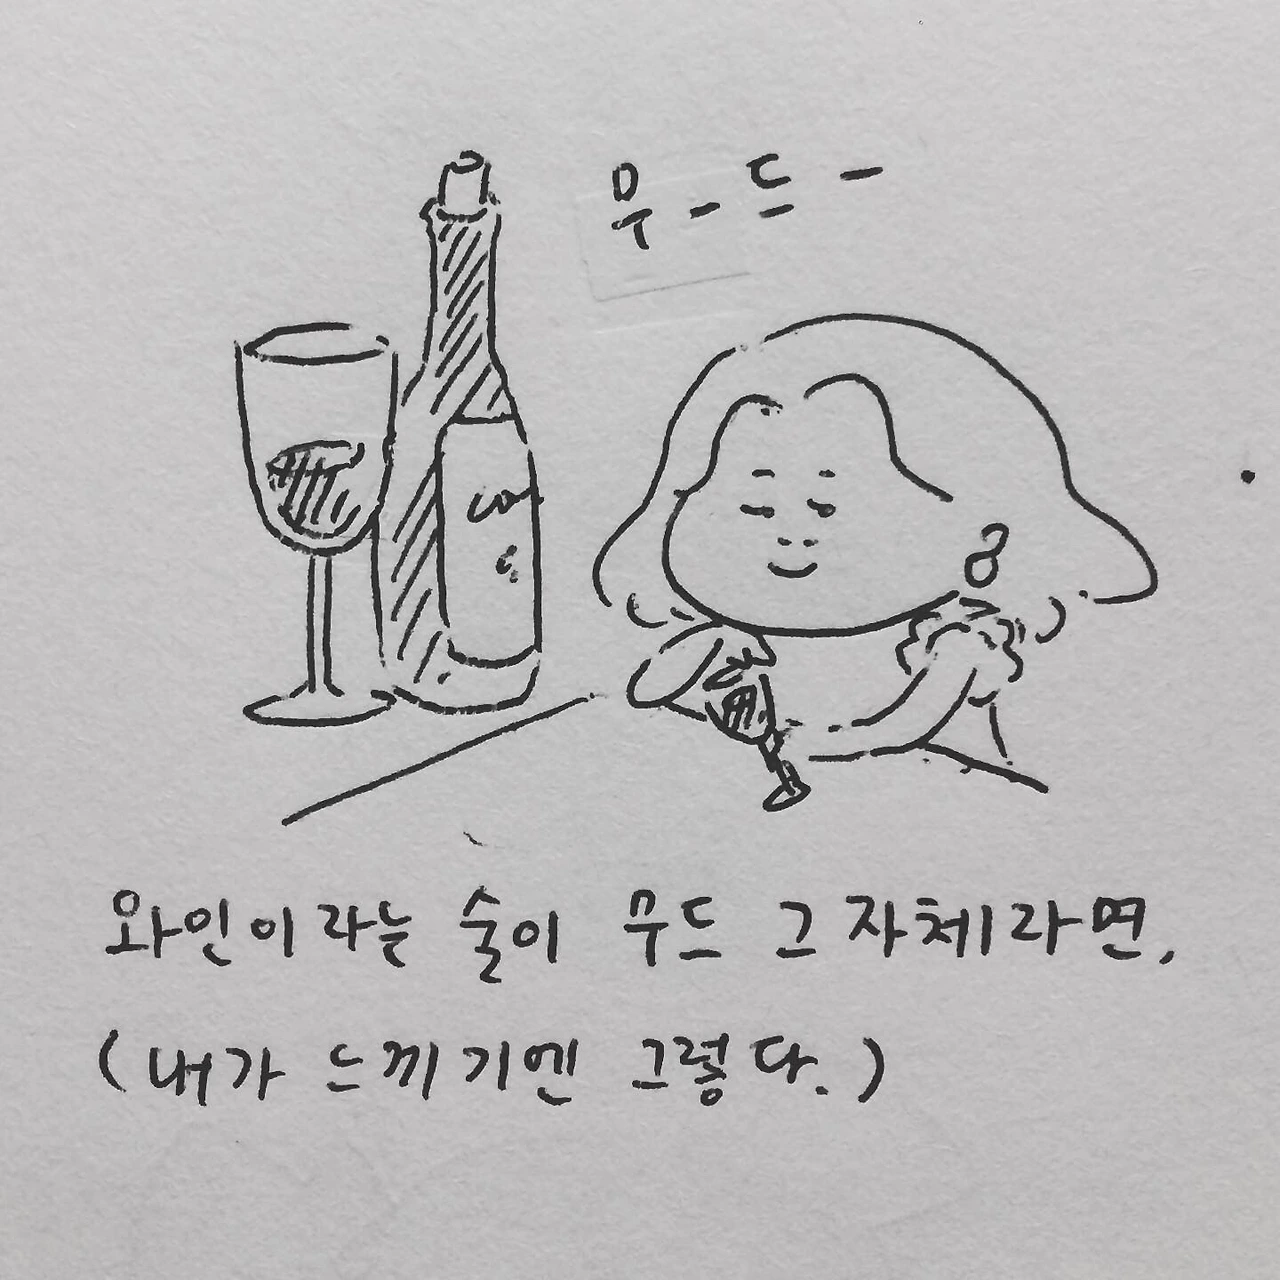 무-드-
와인이라는 술이 무드 그 자체라면,
(내가 느끼기엔 그렇다.)